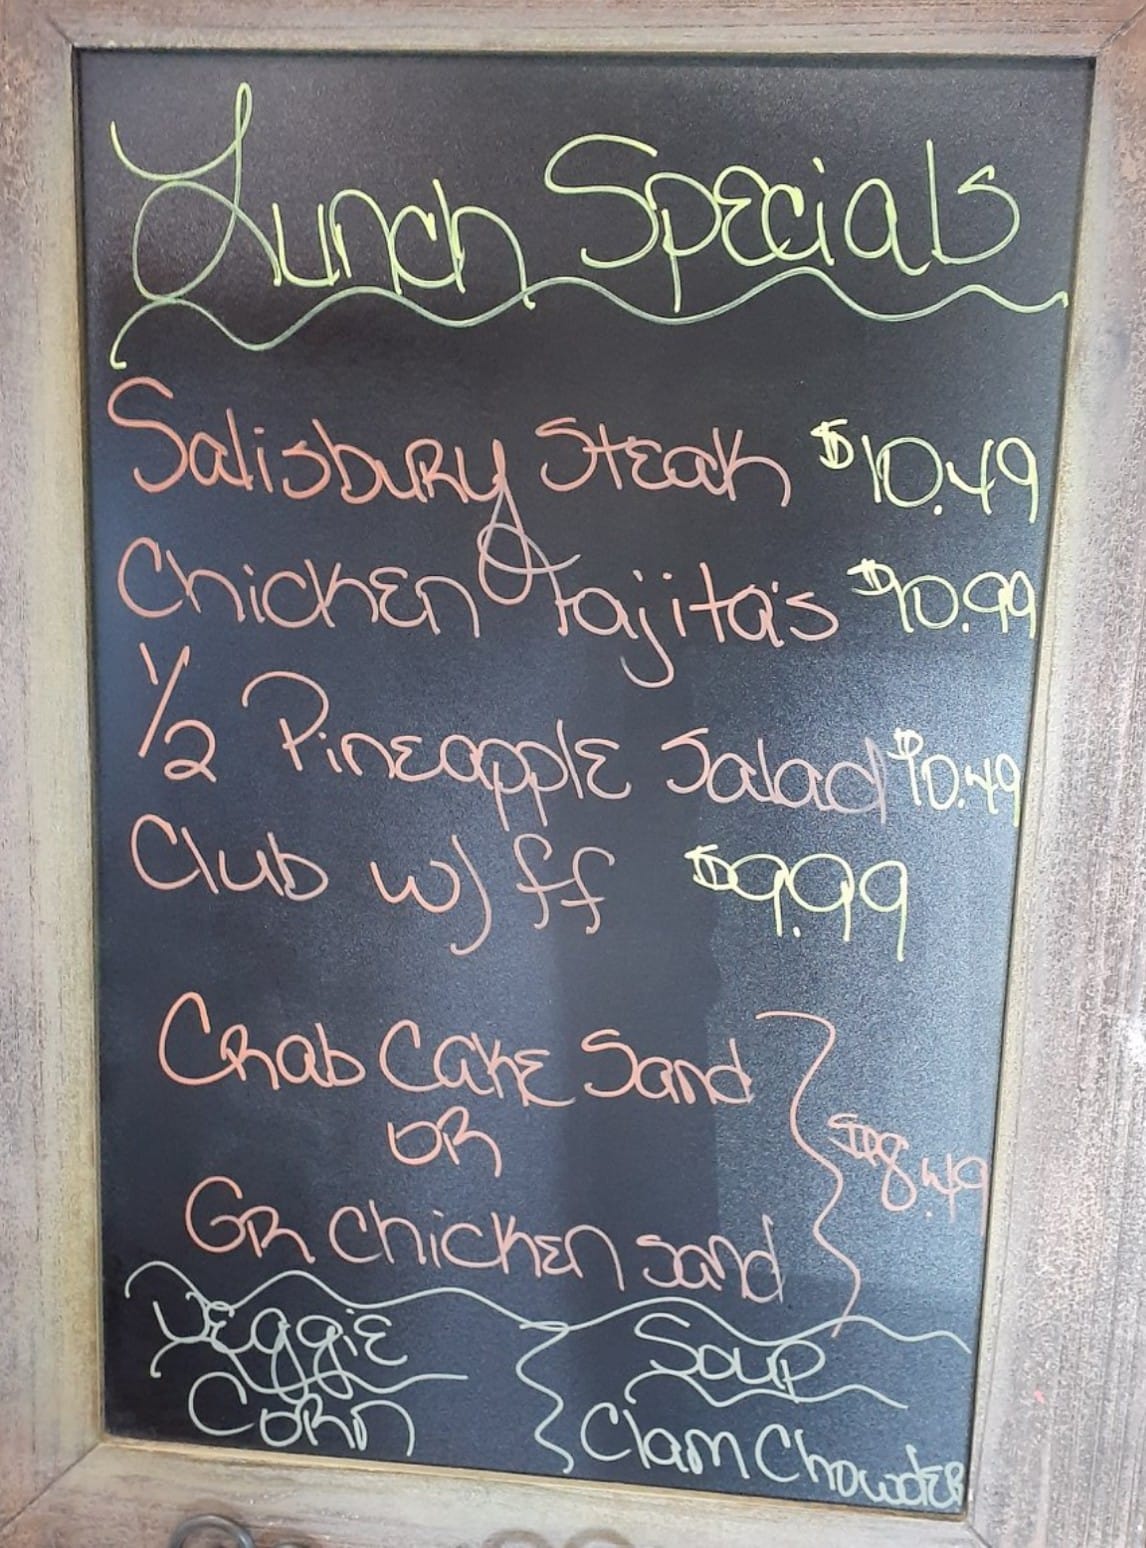 Lunch Specials
Salisbury Steak $10.49
Chicken Fajita's $10.99
1/2 Pineapple Salad $10.49
Club w/ ff $9.99
Crab Cake Sand
OR
GR Chicken Sand
$8.49
Veggie
Corn
Soup
Clam Chowder